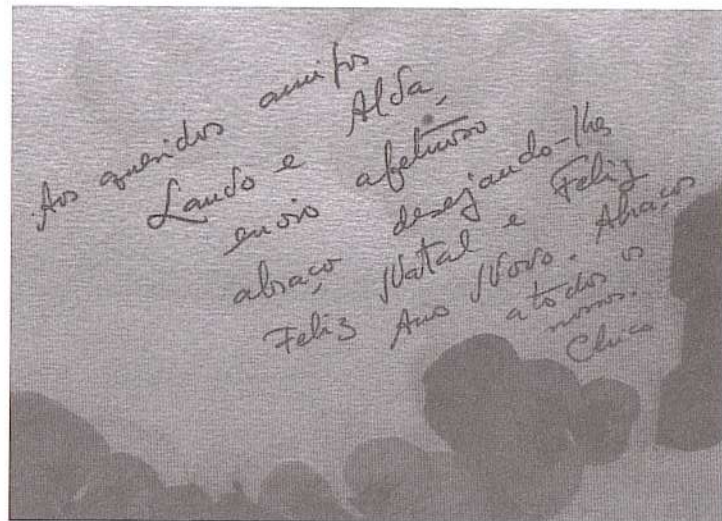 Aos queridos amigos
Lando e Alda,
envio afetuoso
abraço desejando-lhes
Feliz Natal e Feliz
Feliz Ano Novo. Abraços
a todos os
nossos.
Chico